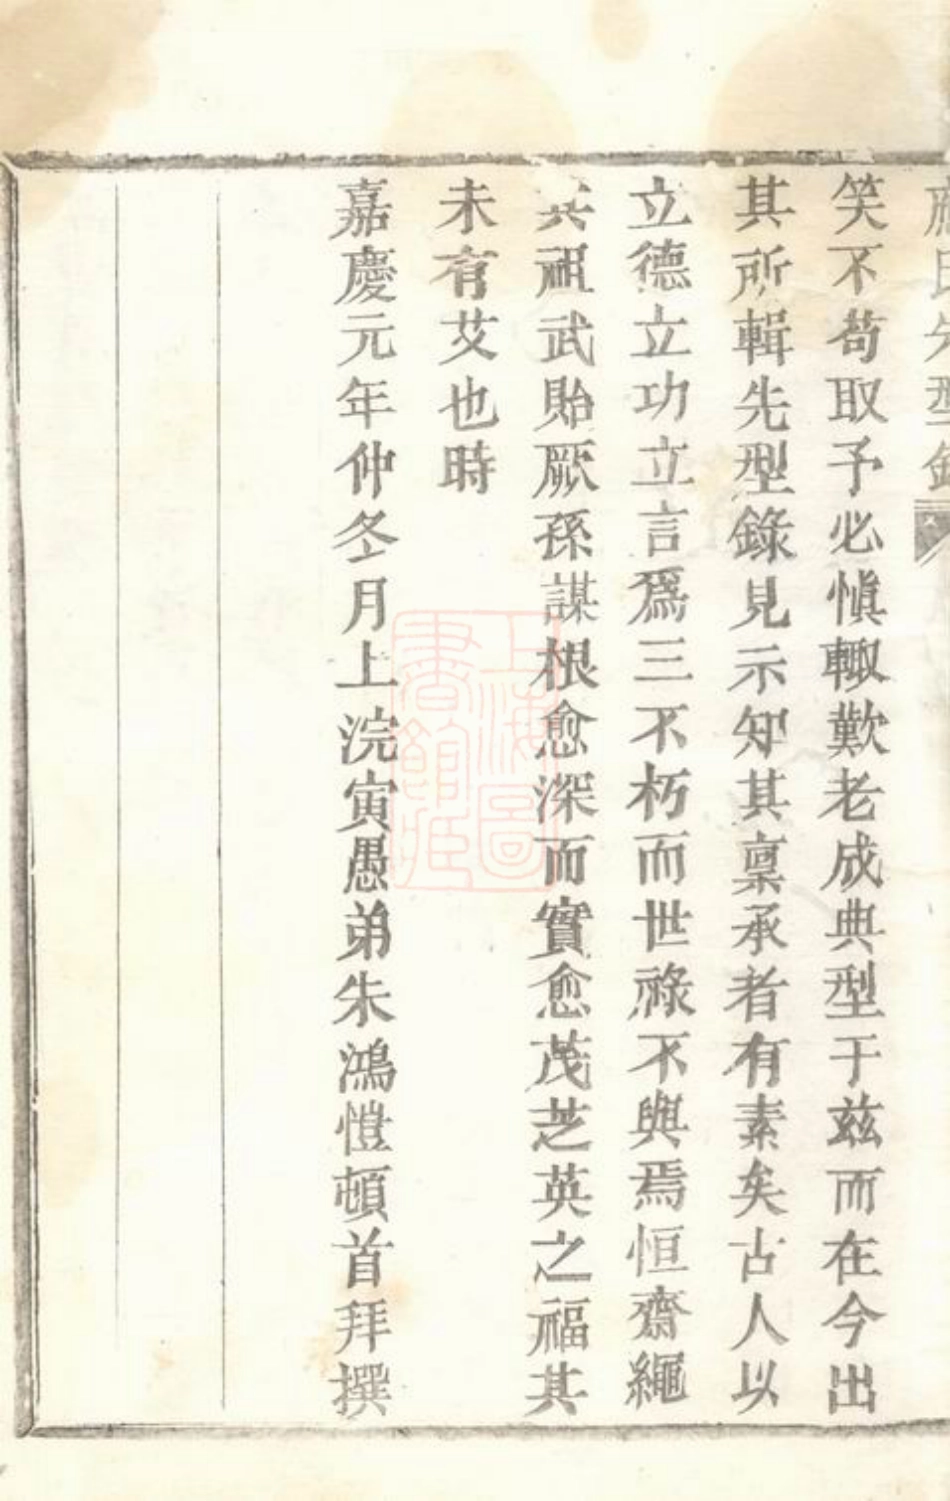 氏先型錄
笑不苟取予必愼輙歎老成典型于兹而在今出
其所輯先型錄見示知其稟承者有素矣古人以
立德立功立言爲三不朽而世祿不與焉恒齋繩
其祖武貽厥孫謀根愈深而實愈茂芝英之福其
未有艾也時
嘉慶元年仲冬月上浣寅愚弟朱鴻愷頓首拜撰
上海圖書館藏